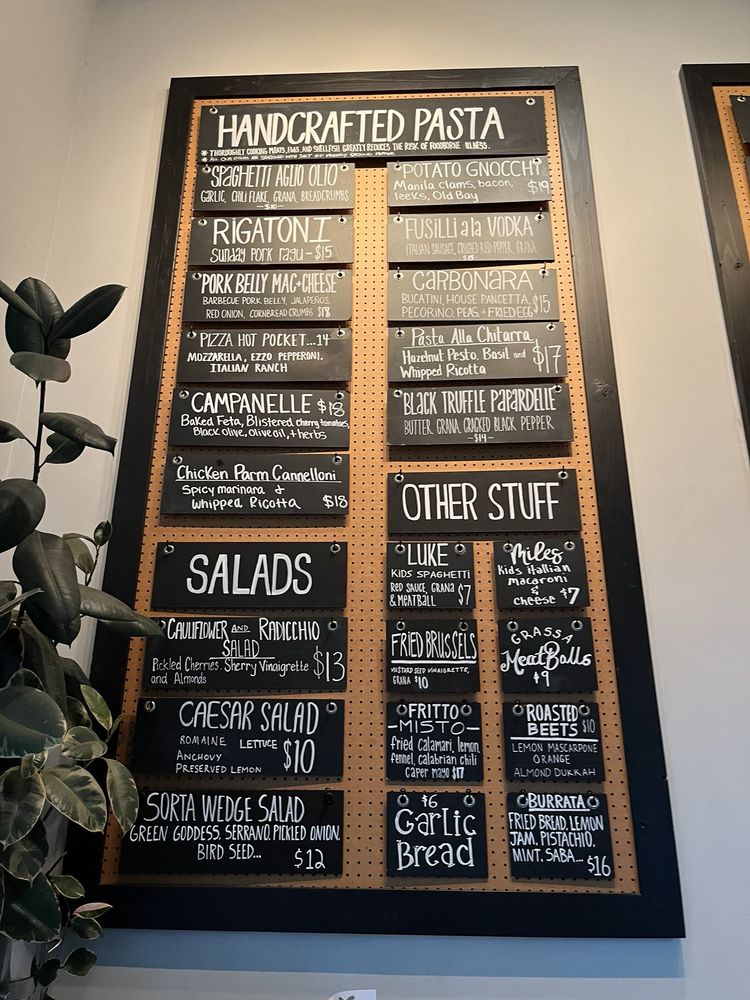 HANDCRAFTED PASTA
* THOROUGHLY COOKING MEATS, EGGS, AND SHELLFISH GREATLY REDUCES THE RISK OF FOODBORNE ILLNESS.
* ALL OUR DISHES ARE SEASONED WITH SALT AND FRESHLY CRACKED PEPPER
SPAGHETTI AGLIO OLIO
GARLIC, CHILI FLAKE, GRANA, BREADCRUMBS
-$10-
RIGATONI
Sunday pork ragu - $15
PORK BELLY MAC+CHEESE
BARBECUE PORK BELLY, JALAPEÑOS,
RED ONION, CORNBREAD CRUMBS $18
PIZZA HOT POCKET...14
MOZZARELLA, EZZO PEPPERONI,
ITALIAN RANCH
CAMPANELLE $18
Baked Feta, Blistered cherry tomatoes,
Black olive, olive oil, + herbs
Chicken Parm Cannelloni
Spicy marinara &
whipped Ricotta $18
POTATO GNOCCHI
Manila clams, bacon,
leeks, Old Bay $19
FUSILLI a la VODKA
ITALIAN SAUSAGE, CRUSHED RED PEPPER, GRANA
$15
CARBONARA
BUCATINI, HOUSE PANCETTA,
PECORINO, PEAS, + FRIED EGG $15
Pasta Alla Chitarra
Hazelnut Pesto, Basil and
Whipped Ricotta $17
BLACK TRUFFLE PAPARDELLE
BUTTER, GRANA, CRACKED BLACK PEPPER
-$14-
SALADS
CAULIFLOWER AND RADICCHIO
SALAD
Pickled Cherries, Sherry Vinaigrette
and Almonds $13
CAESAR SALAD
ROMAINE LETTUCE
ANCHOVY
PRESERVED LEMON $10
SORTA WEDGE SALAD
GREEN GODDESS, SERRANO, PICKLED ONION,
BIRD SEED...
$12
OTHER STUFF
LUKE
KIDS SPAGHETTI
RED SAUCE, GRANA
& MEATBALL $7
Miles
kids italian
macaroni
&
cheese $7
FRIED BRUSSELS
MUSTARD SEED VINAIGRETTE,
GRANA $10
GRASSA
MeatBalls
$9
FRITTO
-MISTO-
fried calamari, lemon,
fennel, calabrian chili
caper mayo $17
ROASTED
BEETS $10
LEMON MASCARPONE
ORANGE
ALMOND DUKKAH
$6
Garlic
Bread
BURRATA
FRIED BREAD, LEMON
JAM, PISTACHIO,
MINT, SABA...
$16